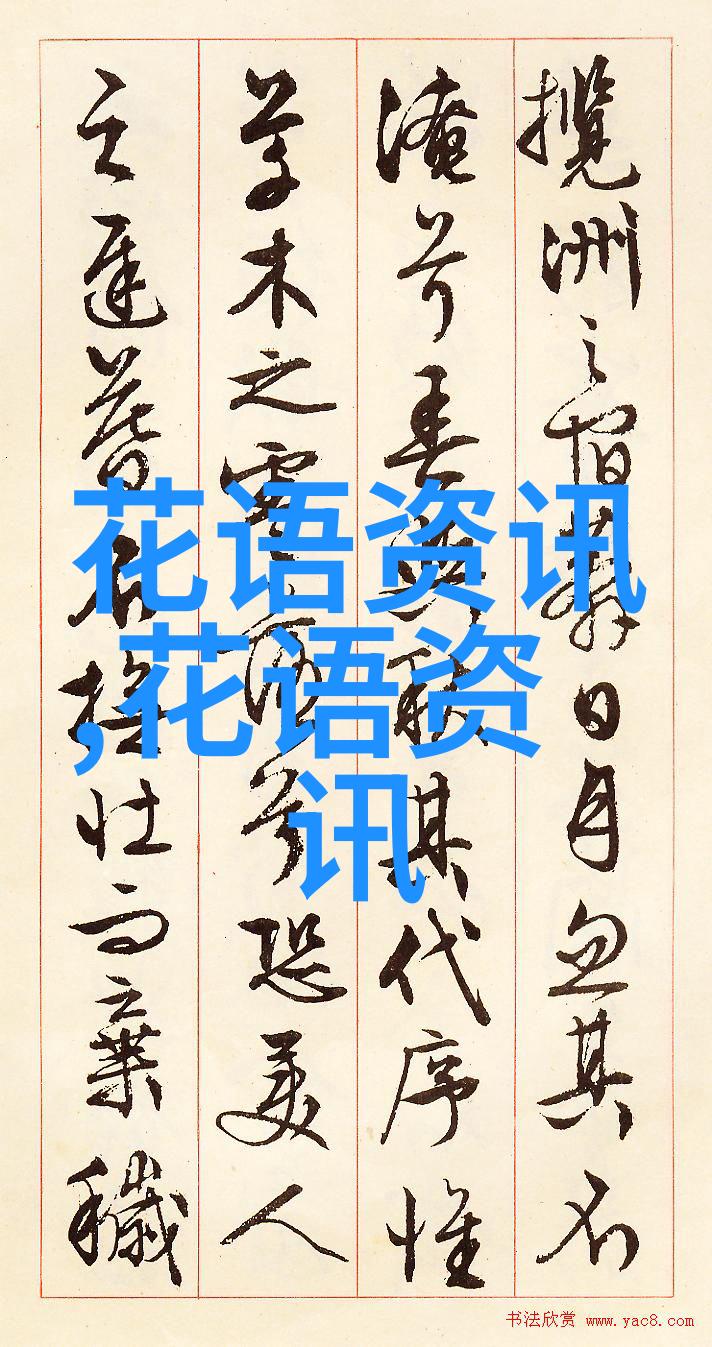 攬洲之宿莽日月忽其不
淹兮春與秋其代序惟
草木之零落兮恐美人
之遲暮不撫壯而棄穢
花语资讯
,花语资
讯
书法欣赏 www.yac8.com